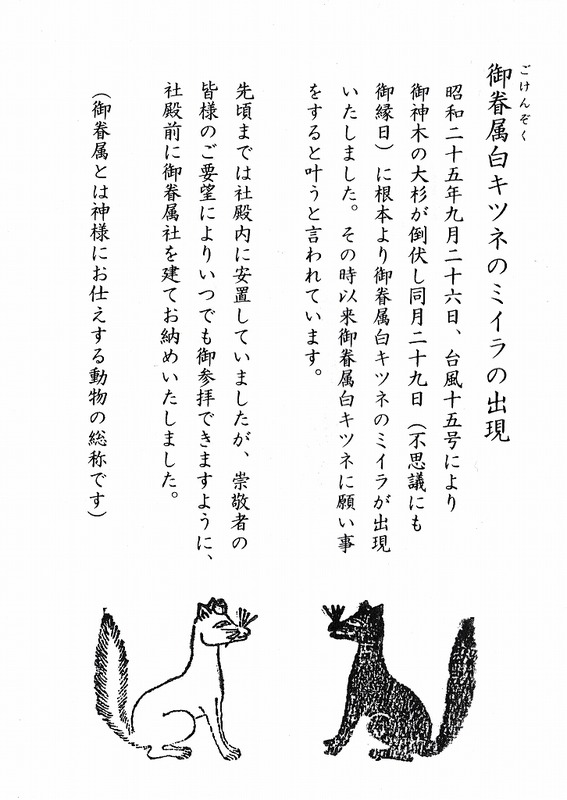 ごけんぞく
御眷属白キツネのミイラの出現
昭和二十五年九月二十六日、台風十五号により
御神木の大杉が倒伏し同月二十九日（不思議にも
御縁日）に根本より御眷属白キツネのミイラが出現
いたしました。その時以来御眷属白キツネに願い事
をすると叶うと言われています。
先頃までは社殿内に安置していましたが、崇敬者の
皆様のご要望によりいつでも御参拝できますように、
社殿前に御眷属社を建てお納めいたしました。
（御眷属とは神様にお仕えする動物の総称です）